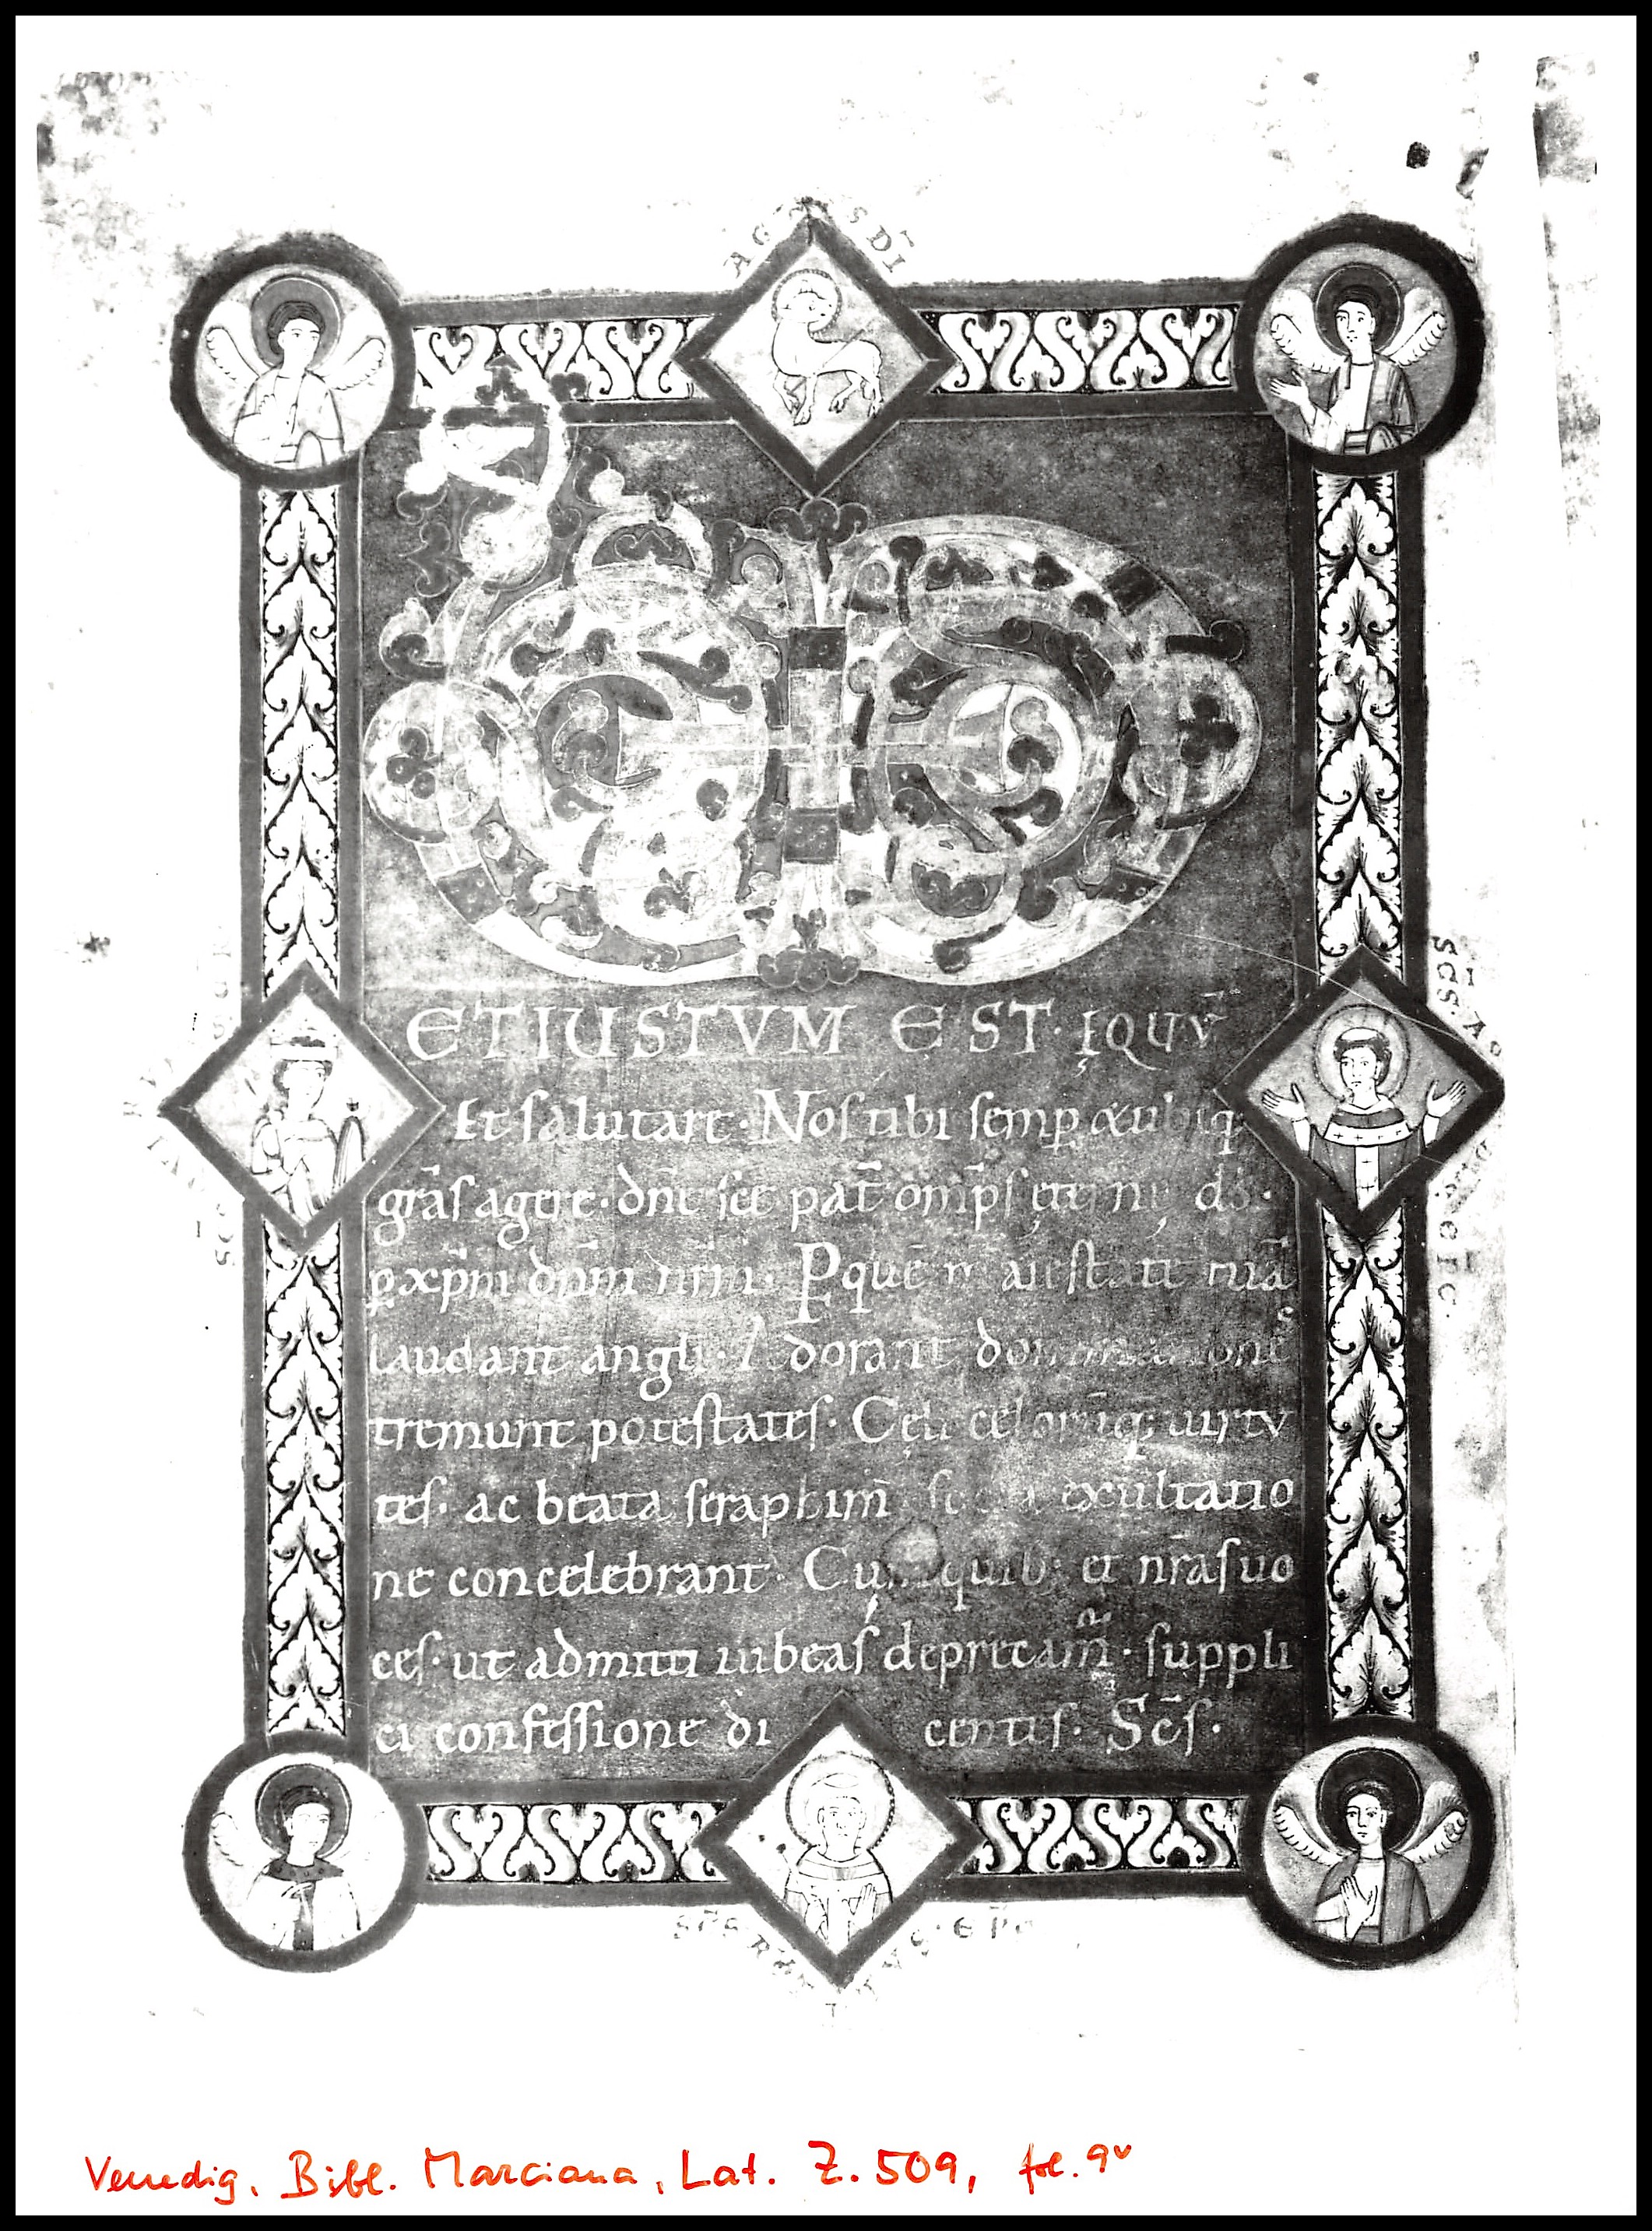 AGNUS DĪ
ET IUSTVM EST. ĘQUV̄
Et salutare. Nos tibi semꝑ & ubiqꝫ
gr̄as agere. dn̄e sc̄e pat̄ om̄ps ęternę ds̄.
ꝑ xp̄m dn̄m nr̄m. Ꝑ quē maiestatē tuā
laudant angli. Adorant dominationes
tremunt potestates. Cęli celorūqꝫ uirtv
tes. ac beata seraphim̄ socia exultatio
ne concelebrant. Cum quib; et nr̄as uo
ces. ut admitti iubeas deprecam̄. suppli
ci confessione di centis. Sc̄s.
Venedig, Bibl. Marciana, Lat. Z. 509, fol. 9v